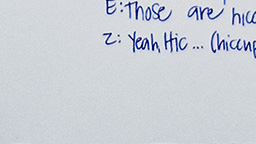 E: Those are hicc
Z: Yeah, Hic... (hiccup